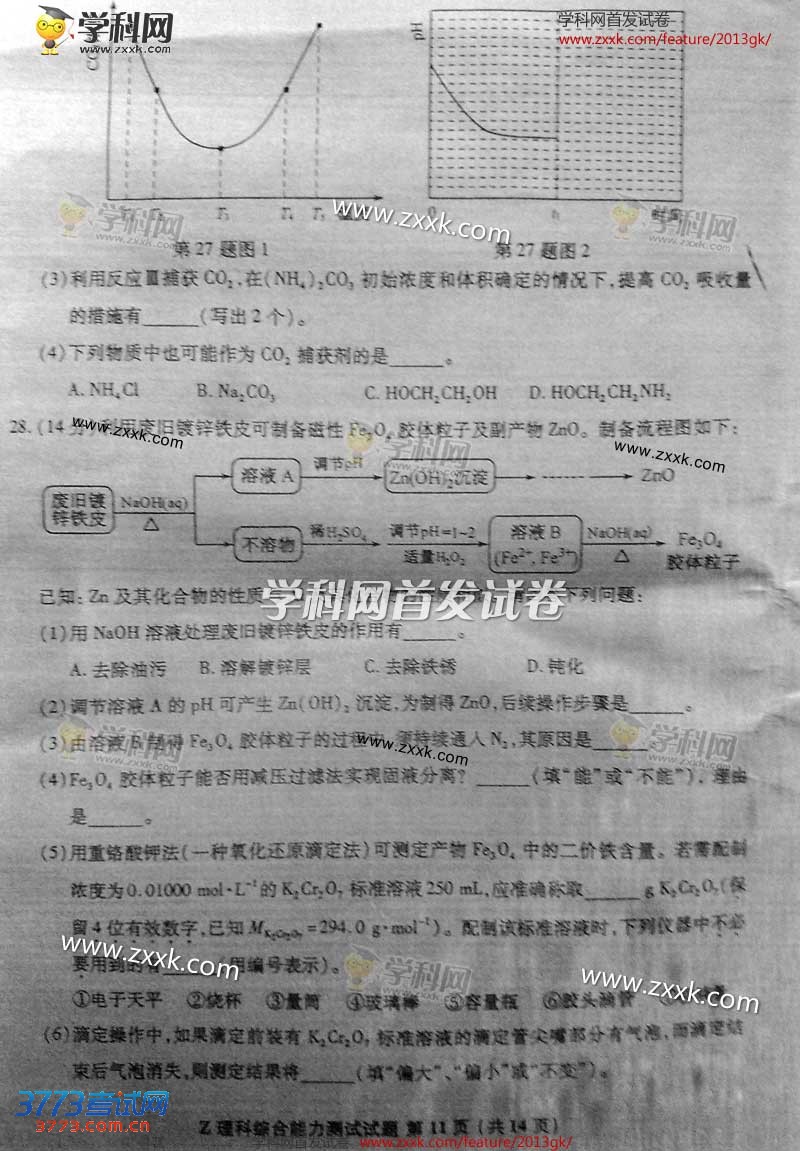 学科网 学科网首发试卷
www.zxxk.com www.zxxk.com/feature/2013gk/
pH
T3 T4 T5 0 t1 时间
学科网 www.zxxk.com 学科网
第27题图1 第27题图2
(3)利用反应Ⅲ捕获CO2,在(NH4)2CO3初始浓度和体积确定的情况下,提高CO2吸收量
的措施有______(写出2个)。
(4)下列物质中也可能作为CO2捕获剂的是______。
A. NH4Cl B. Na2CO3 C. HOCH2CH2OH D. HOCH2CH2NH2
28.(14分)利用废旧镀锌铁皮可制备磁性Fe3O4胶体粒子及副产物ZnO。制备流程图如下:
www.zxxk.com 学科网 www.zxxk.com
溶液A 调节pH Zn(OH)2沉淀 ZnO
废旧镀锌铁皮 NaOH(aq) △
不溶物 稀H2SO4 调节pH=1~2 适量H2O2 溶液B (Fe2+, Fe3+) NaOH(aq) △ Fe3O4 胶体粒子
已知:Zn及其化合物的性质 下列问题:
学科网首发试卷
(1)用NaOH溶液处理废旧镀锌铁皮的作用有______。
A. 去除油污 B. 溶解镀锌层 C. 去除铁锈 D. 钝化
(2)调节溶液A的pH可产生Zn(OH)2沉淀,为制得ZnO,后续操作步骤是______。
(3)由溶液B制得Fe3O4胶体粒子的过程中,须持续通入N2,其原因是______。
学科网 www.zxxk.com 学科网
(4)Fe3O4胶体粒子能否用减压过滤法实现固液分离? ______(填“能”或“不能”),理由
是______。
(5)用重铬酸钾法(一种氧化还原滴定法)可测定产物Fe3O4中的二价铁含量。若需配制
浓度为0.01000 mol·L-1的K2Cr2O7标准溶液250 mL,应准确称取______g K2Cr2O7(保
留4位有效数字,已知MK2Cr2O7=294.0 g·mol-1)。配制该标准溶液时,下列仪器中不必
要用到的有______(用编号表示)。
www.zxxk.com 学科网 www.zxxk.com
①电子天平 ②烧杯 ③量筒 ④玻璃棒 ⑤容量瓶 ⑥胶头滴管
(6)滴定操作中,如果滴定前装有K2Cr2O7标准溶液的滴定管尖嘴部分有气泡,而滴定结
束后气泡消失,则测定结果将______(填“偏大”、“偏小”或“不变”)。
3773考试网
www.zxxk.com/feature/2013gk/
com.cn
Z理科综合能力测试试题 第11页(共14页)
学科网首发试卷